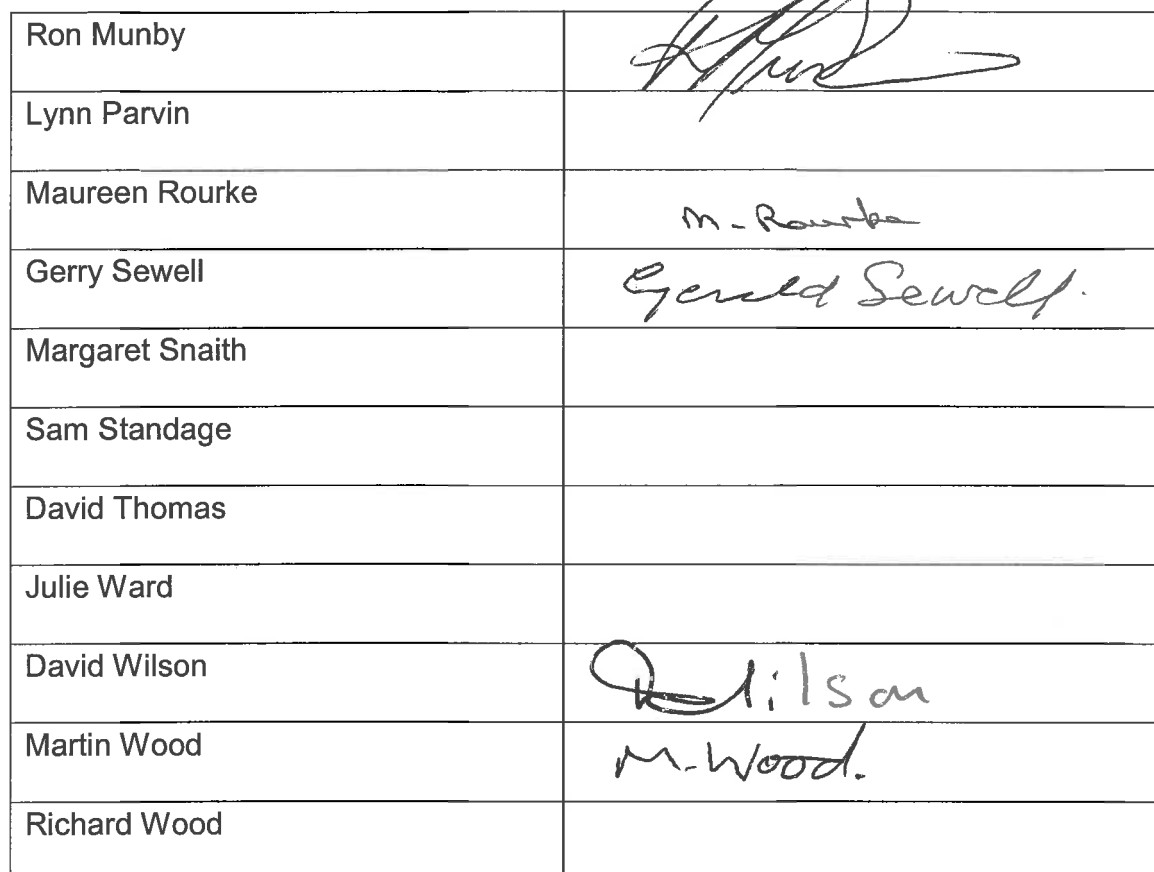 Ron Munby
Lynn Parvin
Maureen Rourke M. Rourke
Gerry Sewell Gerald Sewell.
Margaret Snaith
Sam Standage
David Thomas
Julie Ward
David Wilson DWilson
Martin Wood M. Wood.
Richard Wood